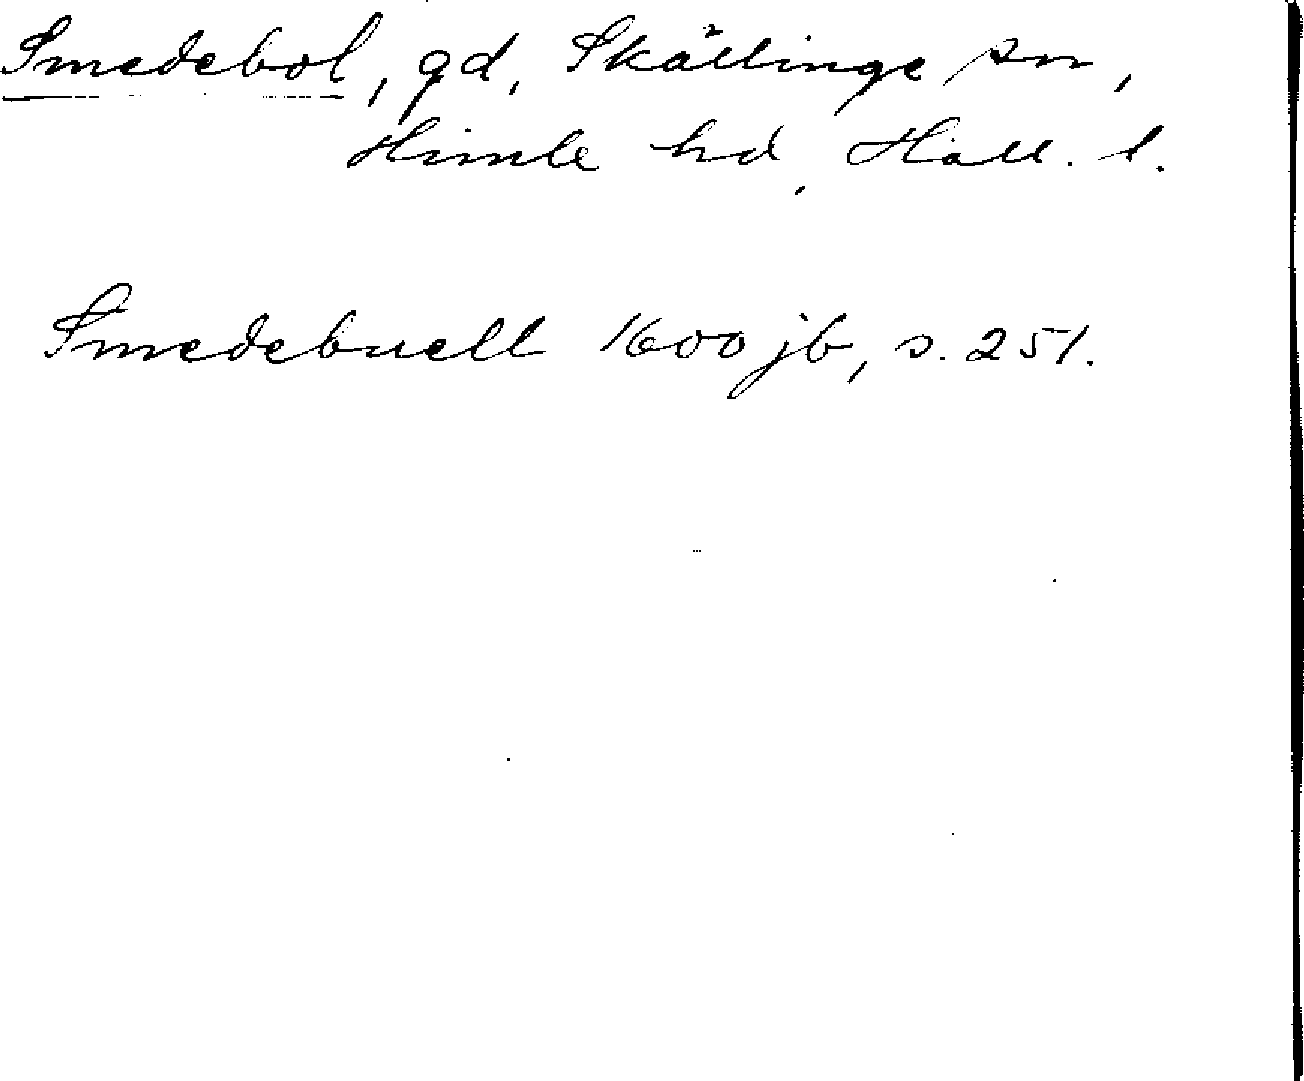 Smedebol, gd, Skällinge sn,
Himle hd, Hall. l.
Smedebuell 1600 jb, s. 251.